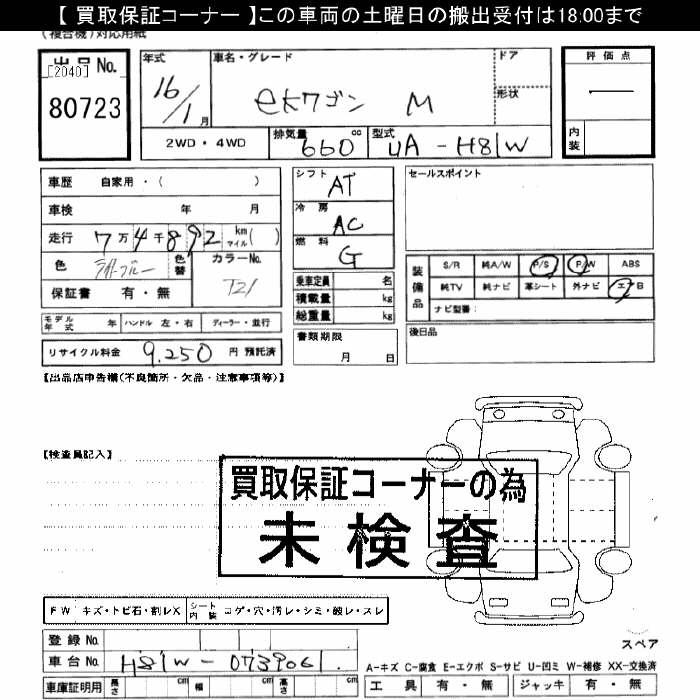 【 買取保証コーナー 】この車両の土曜日の搬出受付は18:00まで
(複合機)対応用紙
出品 No.
[2040]
80723
年式
16/1月
車名・グレード
ekワゴン M
ドア
形状
評価点
—
内装
2WD・4WD
排気量
660
cc
型式
UA-H81W
車歴 自家用・( )
車検 年 月
走行 7万4千892 km マイル( )
色 ライトブルー
色替
カラーNo.
T21
保証書 有・無
シフト
AT
冷房
AC
燃料
G
乗車定員 名
積載量 kg
総重量 kg
セールスポイント
装備品
S/R 純A/W P/S P/W ABS
純TV 純ナビ 革シート 外ナビ エアB
ナビ型番:
モデル年式 年 ハンドル 左・右 ディーラー・並行
リサイクル料金 9,250 円 預託済
書類期限
月 日
後日品
【出品店申告欄(不良箇所・欠品・注意事項等)】
【検査員記入】
買取保証コーナーの為
未検査
FW キズ・トビ石・割レX
シート内装 コゲ・穴・汚レ・シミ・破レ・スレ
登録 No.
車台 No. H81W-0739061
車庫証明用 長さ cm 幅 cm 高さ cm
スペア
A-キズ C-腐食 E-エクボ S-サビ U-凹ミ W-補修 XX-交換済
工具 有・無 ジャッキ 有・無